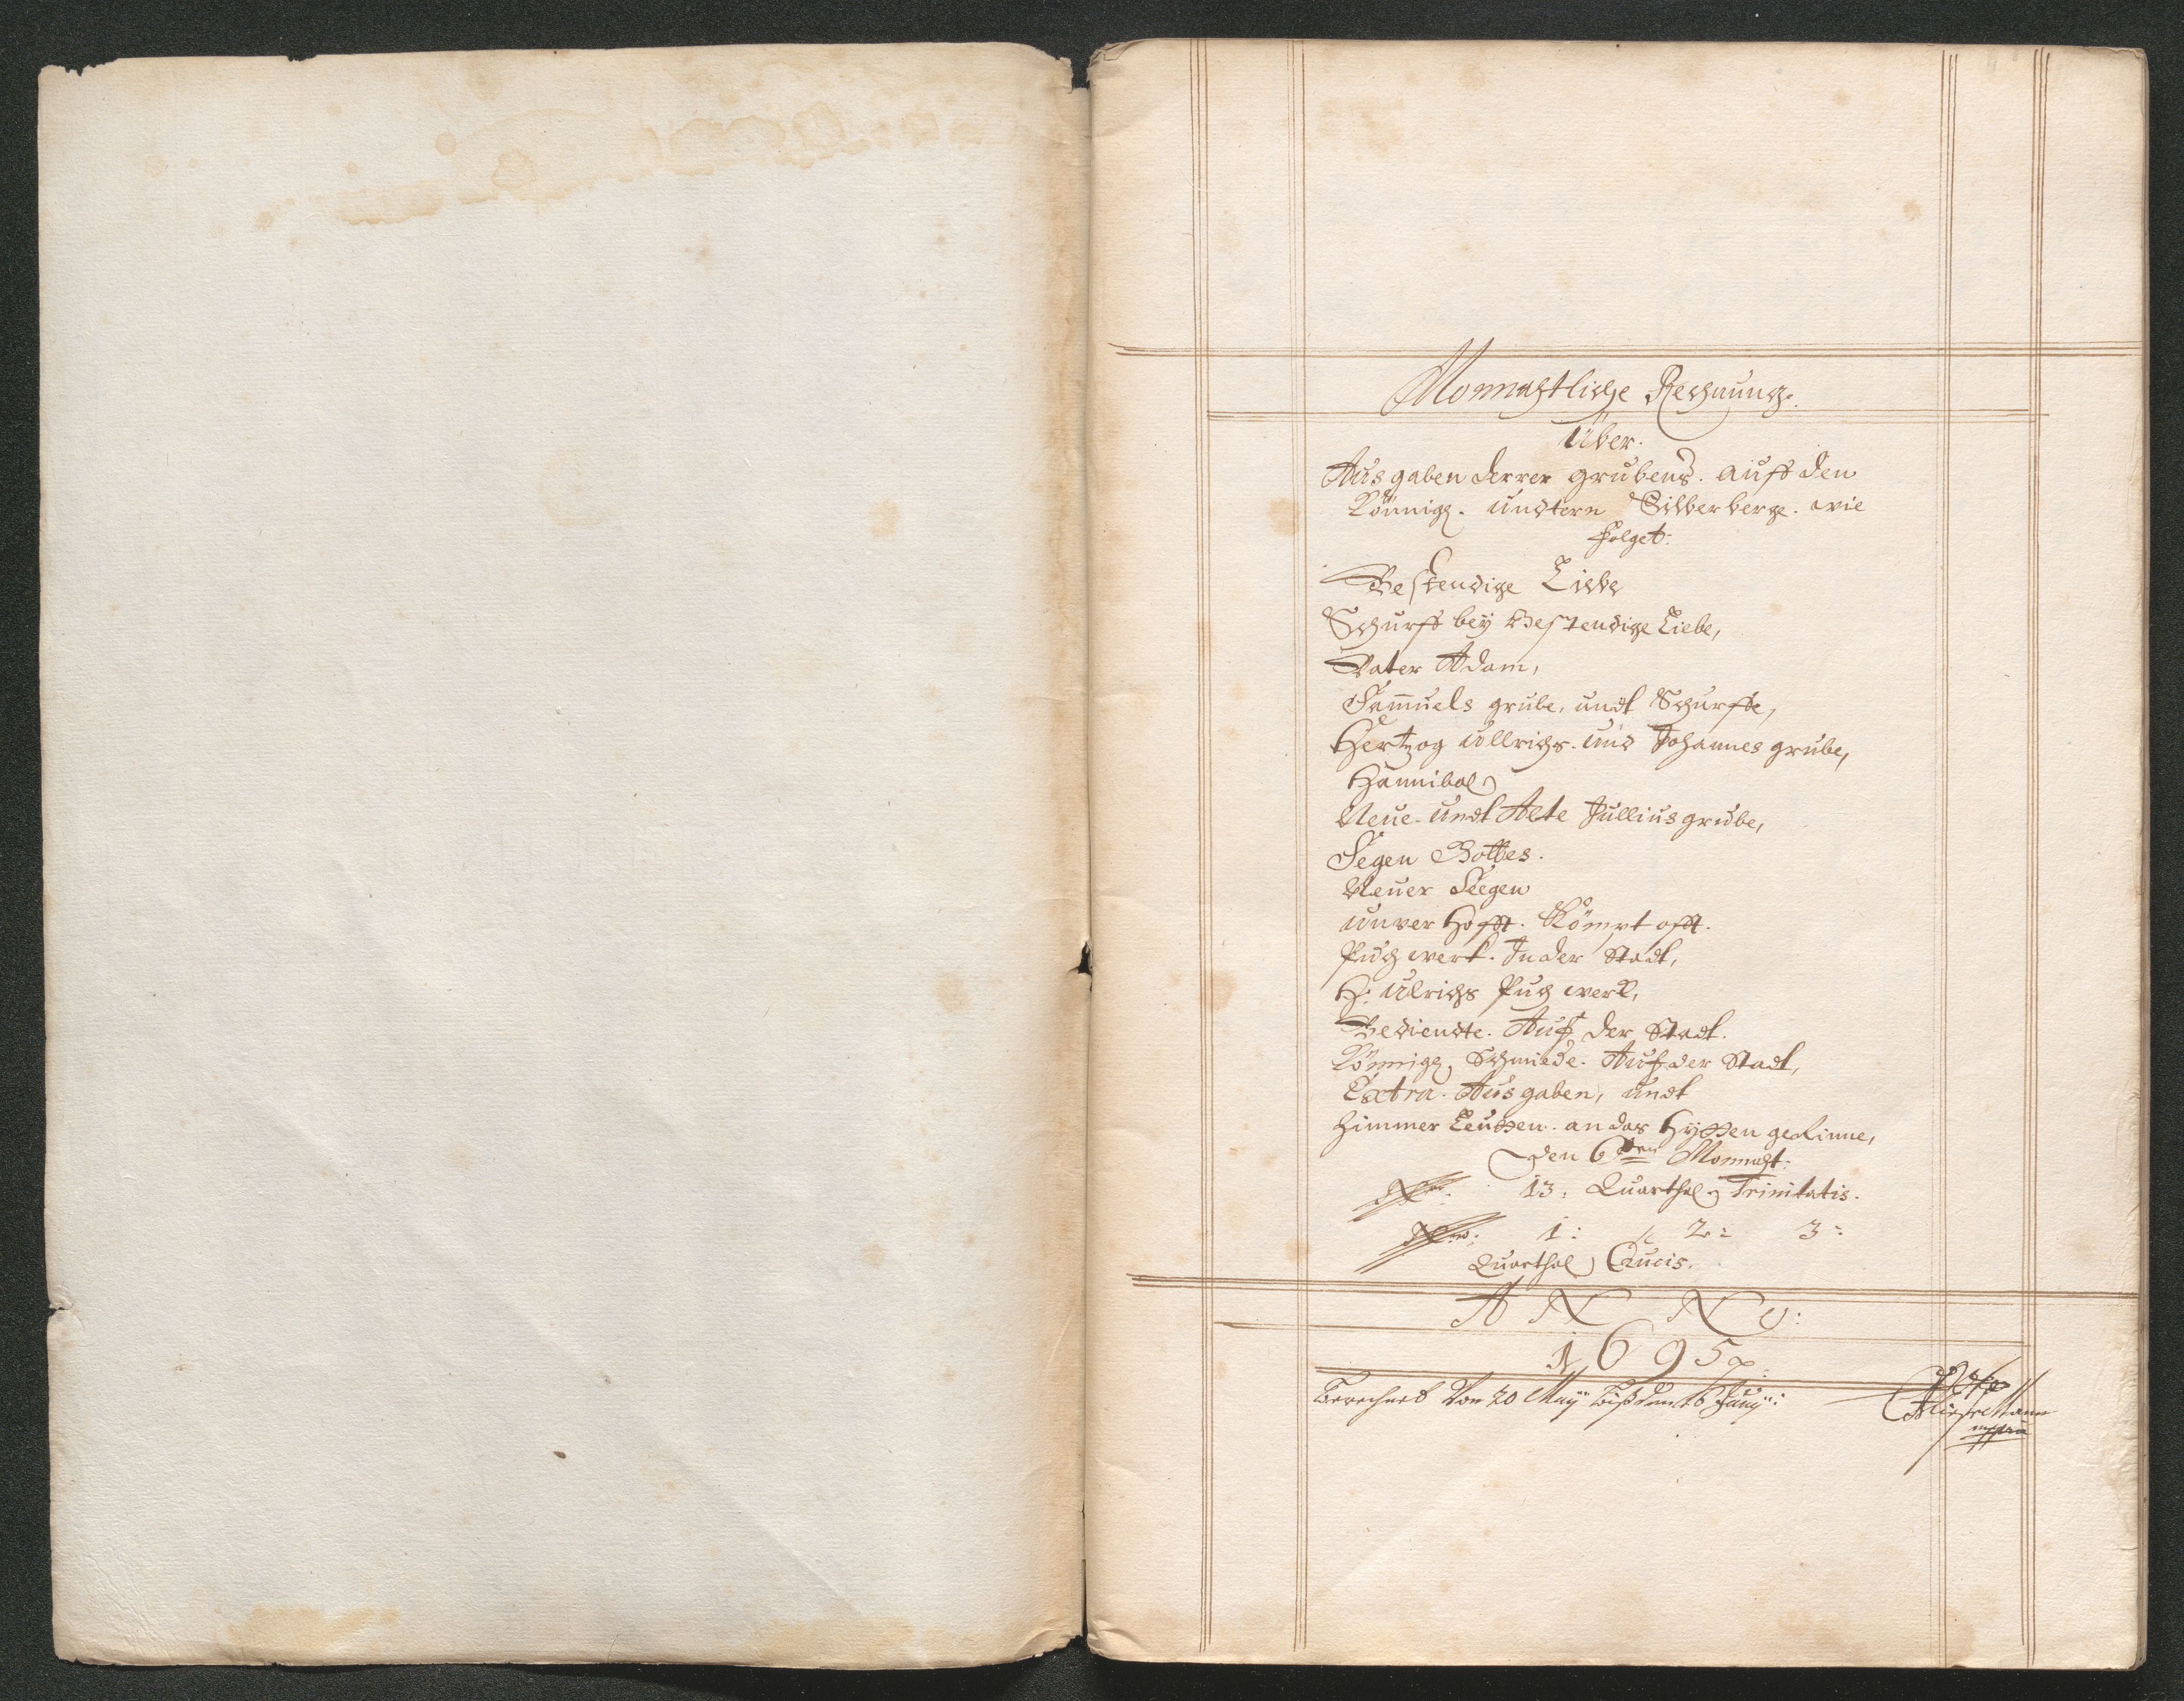 Monnahtliche Rechnung.
Über.
Ausgaben derrer grubens. auff den
Könnigs. undtern Silberberge. wie
folget:
Bestendige Liebe
Schurff bey Bestendige Liebe,
Vater Adam,
Samuels grube, undt Schurffe,
Hertzog Ullrichs. und Johannes grube,
Hannibal
Neue. undt Alte Jullius grube,
Segen Gottes.
Neuer Seegen
unver Hofft. Kömpt offt.
Puch werk. In der Stadt,
H: Ulrichs Puch werk,
Bediendte. Auf der Stadt.
Könnigs. Schmiede. Auf der Stadt,
Extra. Ausgaben, undt
Zimmer Leutten. an das Hütten gerinne,
den 6ten Monnaht:
13: Quarthal Trinitatis.
1: 2: 3:
Quarthal Crucis.
ANNO:
1695
Berechnet Von 20 Maÿ biß den 16 Junÿ:
mppria